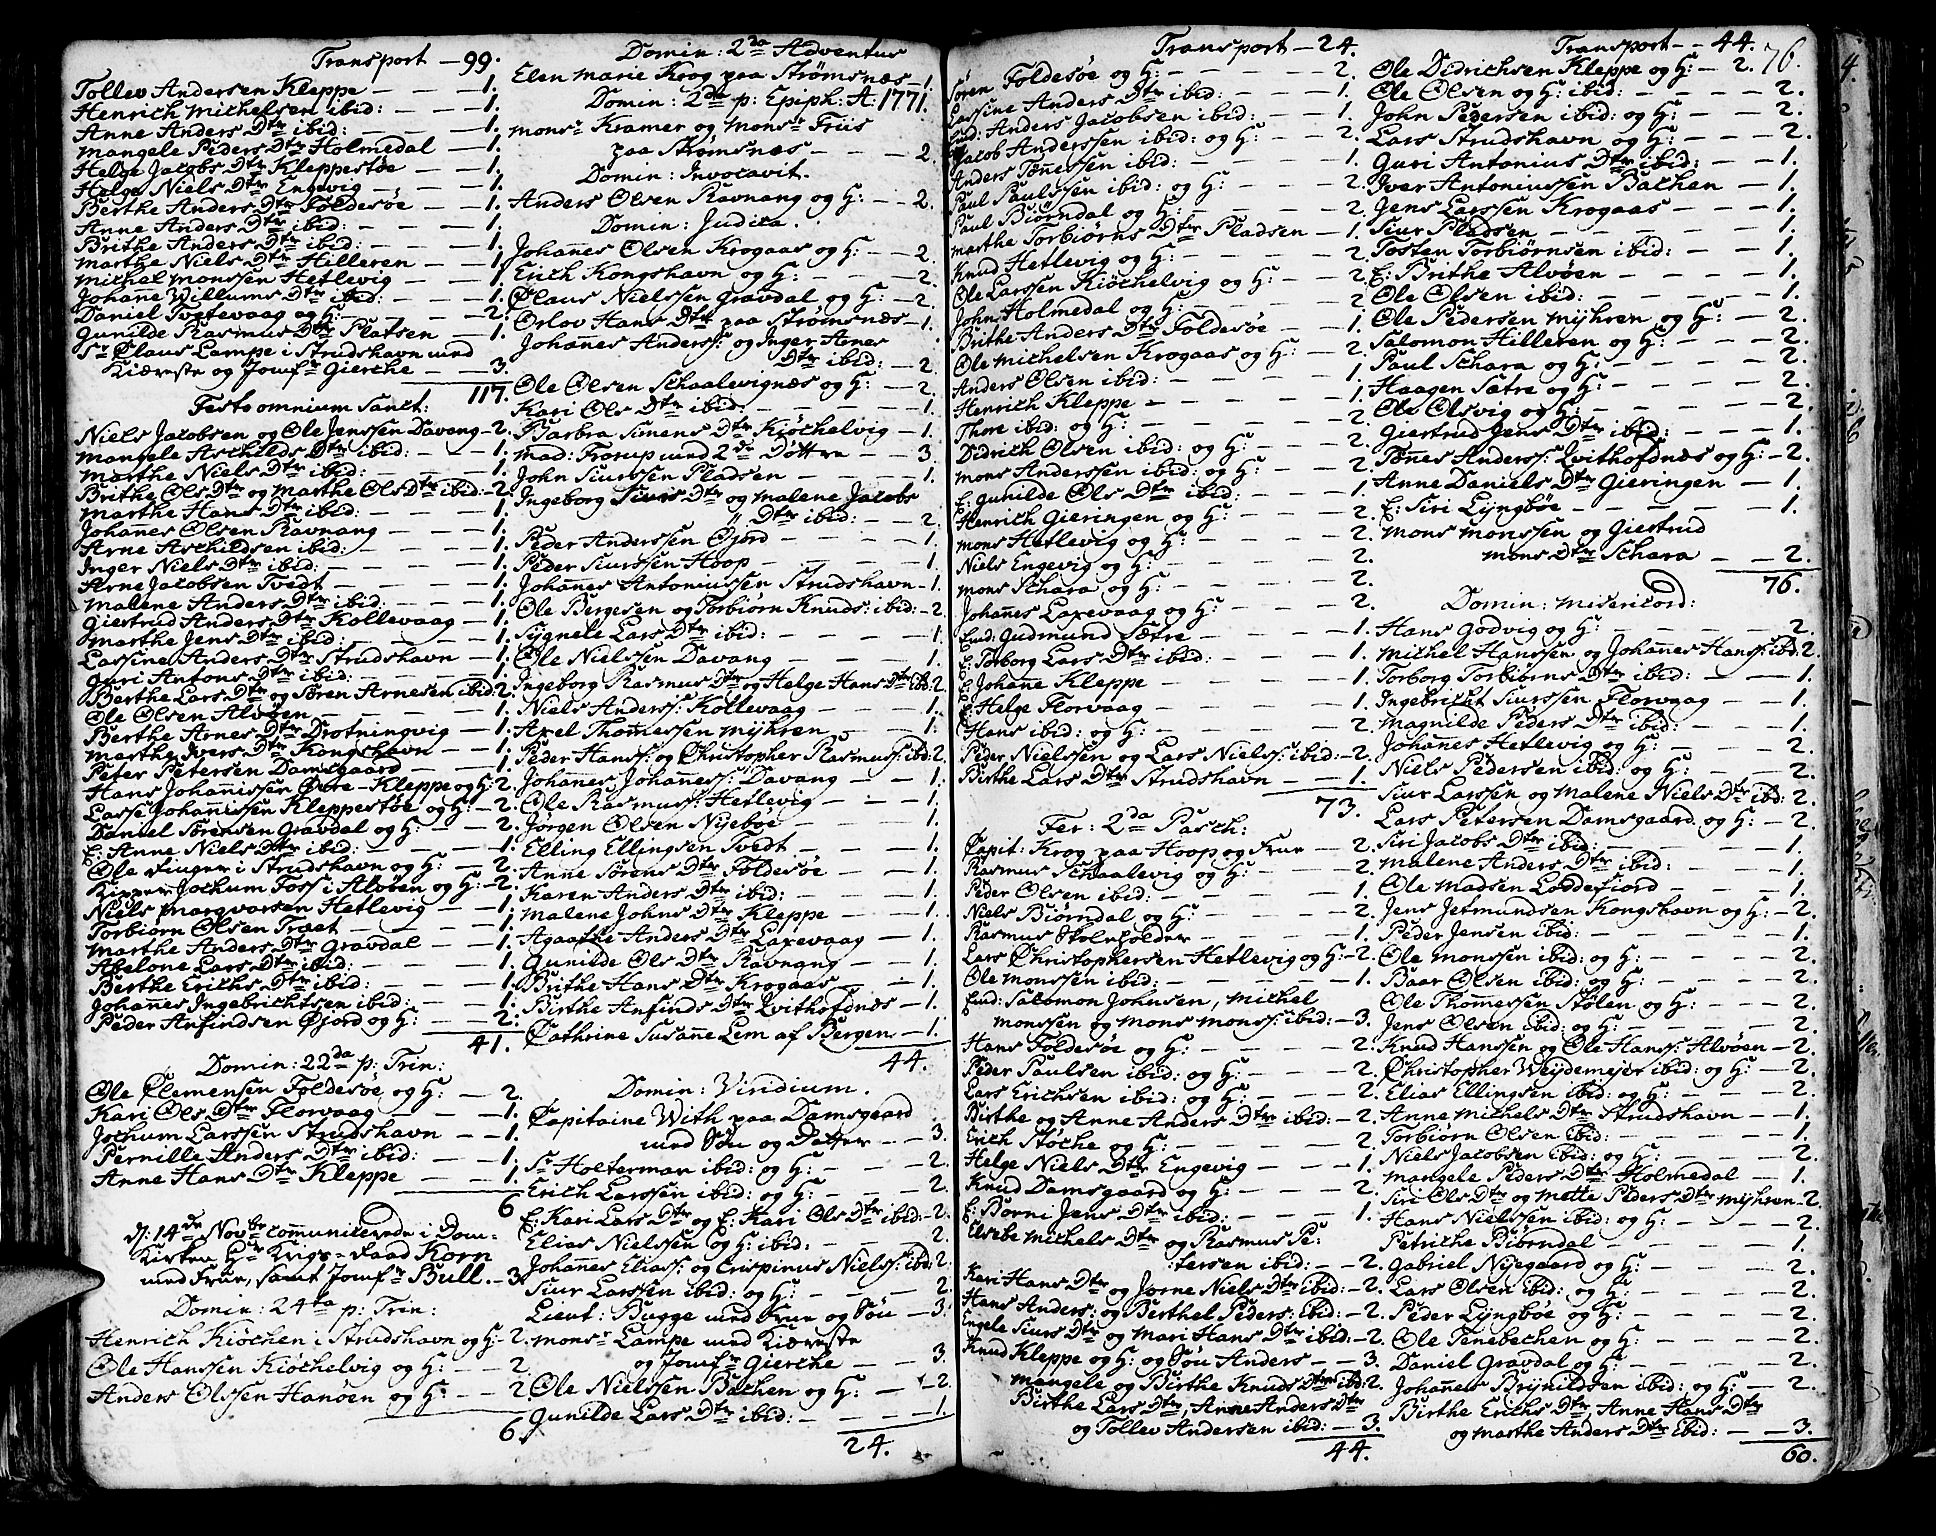 Transport — 99.
Tollev Andersen Kleppe — — — 1.
Henrich Michelsen ibid: — — — 1.
Anne Anders Dtr ibid: — — — 1.
Mangele Peders Dtr Holmedal — — 1.
Helge Jacobs Dtr Kleppestøe — — 1.
Helge Niels Dtr Engevig — — — 1.
Berthe Anders Dtr Foldesøe — — 1.
Anne Anders Dtr ibid: — — — 1.
Brithe Anders Dtr ibid: — — — 1.
Marthe Niels Dtr Hilleren — — 1.
Michel Monssen Hetlevig — — — 1.
Johanne Willums Dtr ibid: — — 1.
Daniel Tvetevaag og H: — — — 2.
Gunilde Rasmus Dtr Platsen — — 1.
Sr Claus Lampe i Strudshavn med
Kiæreste og Jomfr Gierche — — 3.
117.
Festo omnium Sanct:
Niels Jacobsen og Ole Jenssen Davang — 2.
Mangele Aschilds Dtr ibid: — — 1.
Marthe Niels Dtr ibid: — — — 1.
Brithe Ols Dtr og Marthe Ols Dtr ibid: — 2.
Marthe Hans Dtr ibid: — — — 1.
Johannes Olsen Ravnang — — — 1.
Arne Aschildsen ibid: — — — 1.
Inger Niels Dtr ibid: — — — 1.
Arne Jacobsen Tvedt — — — 1.
Malene Anders Dtr ibid: — — — 1.
Giertrud Anders Dtr Kollevaag — — 1.
Marthe Jens Dtr ibid: — — — 1.
Lassine Anders Dtr Strudshavn — — 1.
Guri Antons Dtr ibid: — — — 1.
Berthe Lars Dtr og Søren Arnesen ibid: 2.
Ole Olsen Alvøen — — — 1.
Berthe Arnes Dtr Drotningvig — — 1.
Marthe Ivers Dtr Kongshavn — — 1.
Peter Petersen Damsgaard — — — 1.
Hans Johannissen Øvre-Kleppe og H: 2.
Lasse Johannissen Kleppestøe og H: — 2.
Daniel Sørensen Gravdal og H: — — 2.
E: Anne Niels Dtr ibid: — — — 1.
Ole Finger i Strudshavn og H: — — 2.
Kipper Jochum Foss i Alvøen og H: — 2.
Niels Margvorsen Hetlevig — — 1.
Torbiørn Olsen Træet — — — 1.
Marthe Anders Dtr Gravdal — — 1.
Abelone Lars Dtr ibid: — — — 1.
Berthe Erichs Dtr ibid: — — — 1.
Johannes Ingebrichtsen ibid: — — 1.
Peder Anfindsen Øjord og H: — — 2.
41.
Domin: 22da p: Trin:
Ole Clemensen Foldesøe og H: — — 2.
Kari Ols Dtr Florvaag — — — 1.
Jochum Larssen Strudshavn — — 1.
Pernille Anders Dtr ibid: — — 1.
Anne Hans Dtr Kleppe — — — 1.
6
d: 14de Novbr communicerede i Dom-
Kirken Hr Krigs-Raad Korn
med Frue, samt Jomfr Bull. — 3.
Domin: 24ta p: Trin:
Henrich Kiøchen i Strudshavn og H: — 2.
Ole Hanssen Kiøchelvig og H: — — 2.
Anders Olssen Hanøen og H: — — 2.
6.
Domin: 2da Adventus
Elen Marie Krog paa Strømsnæs — 1.
Domin: 2da p: Epiph: A: 1771.
Monsr Kramer og Monsr Friis
paa Strømsnæs — — — 2.
Domin: Invocavit.
Anders Olsen Ravnang og H: — — 2.
Domin: Judica.
Johannes Olsen Krogaas og H: — — 2.
Erich Kongshavn og H: — — — 2.
Claus Nielssen Gravdal og H: — — 2.
Orlov Hans Dtr paa Strømsnæs — 1.
Johannes Anderss: og Inger Arnes
Dtr ibid: — — 2.
Ole Olsen Schaalevignæs og H: — — 2.
Kari Ols Dtr ibid: — — — — 1.
Barbra Simens Dtr Kiøchelvig — — 1.
Mad: Frorup med 2de Døttre — — 3.
John Siurssen Pladsen — — — 1.
Ingeborg Siurs Dtr og Malene Jacobs
Dtr ibid: — — 2.
Peder Anderssen Øjord — — — 1.
Peder Siurssen Hoop — — — 1.
Johannes Antoniussen Strudshavn — 1.
Ole Bergesen og Torbiørn Knuds: ibid: — 2.
Sygnele Lars Dtr ibid: — — — 1.
Ole Nielssen Davang — — — 1.
Ingeborg Rasmus Dtr og Helge Hans Dtr ibid: 2.
Niels Anderss: Kollevaag — — — 1.
Axel Thommessen Myhren — — — 1.
Peder Hanss: og Christopher Rasmuss: ibd: 2.
Johannes Johanness: Davang — — 1.
Ole Rasmus: Hetlevig — — — 1.
Jørgen Olsen Nyebøe — — — 1.
Elling Ellingsen Tvedt — — — 1.
Anne Sørens Dtr Foldesøe — — — 1.
Karen Anders Dtr ibid: — — — 1.
Malene Johns Dtr Kleppe — — — 1.
Agaathe Anders Dtr Laxevaag — — 1.
Gunilde Ols Dtr Ravnang — — — 1.
Brithe Hans Dtr Krogaas — — — 1.
Birthe Anfinds Dtr Qvithofdnæs — 1.
Cathrine Susanne Lem af Bergen — 1.
44.
Domin: Viridium.
Capitaine With paa Damsgaard
med Søn og Datter — — 3.
Sr Holterman ibid: og H: — — — 2.
Erich Larssen ibid: og H: — — — 2.
E: Kari Lars Dtr og E: Kari Ols Dtr ibid: — 2.
Elias Nielssen og H: ibid: — — — 2.
Johannes Eliass: og Crispinus Nielss: ibd: 2.
Siur Larssen ibid: og H: — — — 2.
Lieut: Bugge med Frue og Søn — 3.
Monsr Lampe med Kiæreste
og Jomfr Gierche — — 3.
Ole Nielssen Bachen og H: — — 2.
Gunilde Lars Dtr ibid: — — — 1.
24.
Transport — 24.
Søren Foldesøe og H: — — — — 2.
Lassine Anders Dtr ibid: — — — 1.
Eud: Anders Jacobsen ibid: — — — 1.
Jacob Anderssen ibid: og H: — — — 2.
Anders Tønessen ibid: — — — 1.
Paul Paulssen ibid: og H: — — — 2.
Paul Biørndal og H: — — — 2.
Marthe Torbiørns Dtr Pladsen — — 1.
Knud Hetlevig og H: — — — 2.
Ole Larssen Kiöchelvig og H: — — 2.
John Holmedal og H: — — — 2.
Brithe Anders Dtr Foldesøe — — — 1.
Ole Michelsen Krogaas og H: — — 2.
Anders Olsen ibid: — — — 1.
Henrich Kleppe — — — — 1.
Thore ibid: og H: — — — 2.
Didrich Olsen ibid: og H: — — — 2.
Mons Anderssen ibid: og H: — — 2.
E: Gunilde Ols Dtr ibid: — — — 1.
Henrich Gieringen og H: — — — 2.
Mons Hetlevig og H: — — — 2.
Niels Engevig og H: — — — 2.
Mons Schara og H: — — — 2.
Johannes Laxevaag og H: — — — 2.
Eud: Gudmund Sætre — — — 1.
E: Torborg Lars Dtr ibid: — — — 1.
E: Johanne Kleppe — — — 1.
E: Helge Florvaag — — — 1.
Hans ibid: og H: — — — 2.
Peder Nielssen og Lars Nielss: ibid: — 2.
Birthe Lars Dtr Strudshavn — — 1.
73.
Fer: 2da Pasch:
Capit: Krog paa Hoop og Frue — — 2.
Rasmus Schaalevig og H: — — — 2.
Peder Olsen ibid: — — — 1.
Niels Biørndal og H: — — — 2.
Rasmus Skoleholder — — — 1.
Lars Christophersen Hetlevig og H: — 2.
Ole Monssen ibid: — — — 1.
Eud: Salomon Johnsen, Michel
Monssen og Mons Monss: ibid: — 3.
Hans Foldesøe og H: — — — 2.
Peder Paulsen ibid: og H: — — — 2.
Lars Erichsen ibid: og H: — — — 2.
Birthe og Anne Anders Dtr ibid: — 2.
Erich Støche og H: — — — 2.
Helge Niels Dtr Engevig — — — 1.
Knud Damsgaard og H: — — — 2.
E: Børni Jens Dtr ibid: — — — 1.
Elsebe Michels Dtr og Rasmus Pe-
tersen ibid: — — 2.
Kari Hans Dtr og Jorne Niels Dtr ibid: — 2.
Hans Anders: og Berthel Peders: ibid: — 2.
Engele Siurs Dtr og Mari Hans Dtr ibid: — 2.
Knud Kleppe og H: og Søn Anders — — 3.
Mangele og Birthe Knuds Dtr ibd: 2.
Birthe Lars Dtr, Anne Anders Dtr
og Tollev Andersen ibid: — 3.
44.
Transport — 44. 76.
Ole Didrichsen Kleppe og H: — 2.
Ole Olsen og H: ibid: — — — 2.
John Pedersen ibid: og H: — — 2.
Lars Strudshavn og H: — — — 2.
Guri Antonius Dtr ibid: — — — 1.
Iver Antoniussen Bachen — — 1.
Jens Larssen Krogaas — — — 1.
Siur Pladsen — — — 1.
Tosten Torbiørnsen ibid: — — — 1.
E: Brithe Alvøen — — — 1.
Ole Olsen ibid: — — — 1.
Ole Pedersen Myhren og H: — — 2.
Salomon Hilleren og H: — — — 2.
Paul Schara og H: — — — 2.
Haagen Sætre og H: — — — 2.
Ole Olsvig og H: — — — 2.
Giertrud Jens Dtr ibid: — — — 1.
Tønnes Anderss: Qvithofdnæs og H: — 2.
Anne Daniels Dtr Gieringen — — 1.
E: Siri Lyngbøe — — — — 1.
Mons Monssen og Giertrud
Mons Dtr Schara — — 2.
76.
Domin: Misericord:
Hans Godvig og H: — — — 2.
Michel Hanssen og Johannes Hanss: ibd: 2.
Torborg Torbiørns Dtr ibid: — — 1.
Ingebricht Siurssen Florvaag — — 1.
Magnilde Peders Dtr ibid: — — 1.
Johannes Hetlevig og H: — — — 2.
Niels Pedersen ibid: og H: — — 2.
Siur Larssen og Malene Niels Dtr ibd: 2.
Lars Petersen Damsgaard og H: — 2.
Siri Jacobs Dtr ibid: — — — 1.
Malene Anders Dtr ibid: — — — 1.
Ole Madsen Loddefiord — — — 1.
Jens Jetmundsen Kongshavn og H: — 2.
Peder Jensen ibid: — — — 1.
Ole Monssen ibid: og H: — — — 2.
Baar Olsen ibid: og H: — — — 2.
Ole Thommessen Stølen og H: — — 2.
Jens Olsen ibid: og H: — — — 2.
Knud Hanssen og Ole Hanss: Alvøen — 2.
Christopher Weydemejer ibid: og H: — 2.
Elias Ellingsen ibid: og H: — — 2.
Anne Michels Dtr Strudshavn — — 1.
Torbiørn Olsen ibid: — — — 1.
Niels Jacobsen ibid: og H: — — — 2.
Mangele Peders Dtr Holmedal — — 1.
Siri Ols Dtr og Mette Peders Dtr Myhren — 2.
Hans Nielssen ibid: og H: — — — 2.
Petriche Biørndal — — — 1.
Gabriel Nyegaard og H: — — — 2.
Lars Olsen ibid: og H: — — — 2.
Peder Lyngbøe og H: — — — 2.
Ole Tenebechen og H: — — — 2.
Daniel Gravdal og H: — — — 2.
Johannes Brynildsen ibid: og H: — — 2.
Birthe Erichs Dtr, Anne Hans Dtr
og Marthe Anders Dtr ibid: — — 3.
60.